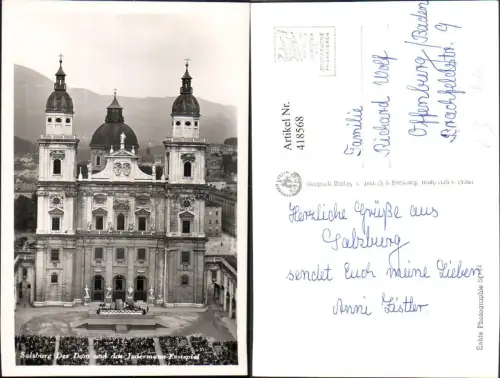 Salzburg Der Dom und das Jedermann-Festspiel
Artikel Nr.
418568
Familie
Richard Wolf
Offenburg/Baden
Drachfeldstr. 9
Herzliche Grüße aus
Salzburg
sendet Euch meine Lieben
Anni Zistler.
Echte Photographie